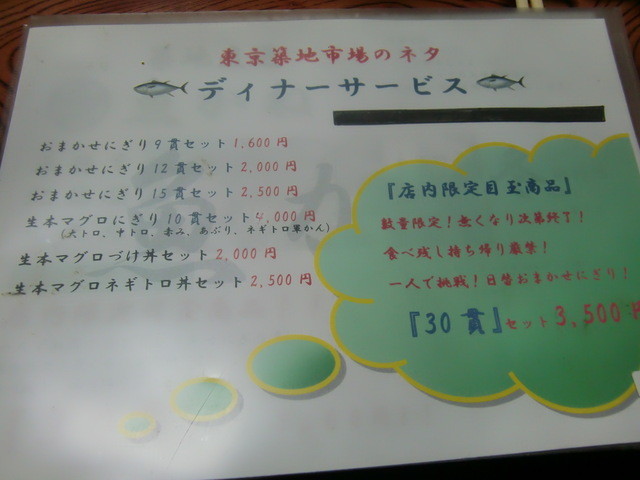 東京築地市場のネタ
ディナーサービス
おまかせにぎり9貫セット1,600円
おまかせにぎり12貫セット2,000円
おまかせにぎり15貫セット2,500円
生本マグロにぎり10貫セット4,000円
(大トロ、中トロ、赤み、あぶり、ネギトロ軍かん)
生本マグロづけ丼セット2,000円
生本マグロネギトロ丼セット2,500円
『店内限定目玉商品』
数量限定!無くなり次第終了!
食べ残し持ち帰り厳禁!
一人で挑戦!日替おまかせにぎり!
『30貫』セット3,500円